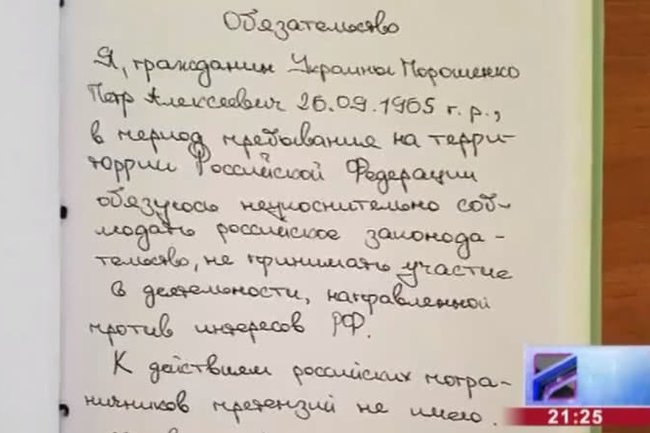 Обязательство
Я, гражданин Украины Порошенко
Петр Алексеевич 26.09.1965 г.р.,
в период пребывания на терри-
торрии Российской Федерации
обязуюсь неукоснительно соб-
людать российское законода-
тельство, не принимать участие
в деятельности, направленной
против интересов РФ.
К действием российских погра-
ничников претензий не имею.
21:25